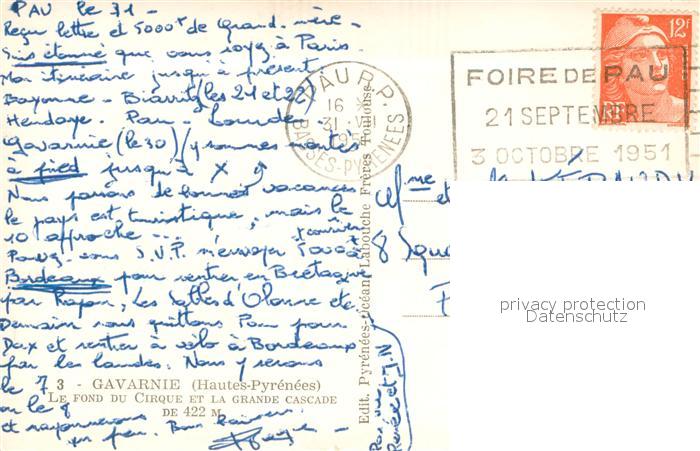 PAU le 31 -
Reçu lettre et 5000 de Grand-mère -
Suis étonné que vous soyez à Paris.
Mon itinéraire jusqu'à présent
Bayonne - Biarritz (les 21 et 22)
Hendaye. Pau - Lourdes -
Gavarnie (le 30) (y sommes montés
à pied jusqu'à X
Nous passons de bonnes vacances
le pays est touristique, mais le
10 approche ...
Pouvez-vous S.V.P. m'envoyer à
Bordeaux pour rentrer en Bretagne
par Royan, Les Sables d'Olonne etc
Demain nous quittons Pau pour
Dax et rentrer à vélo à Bordeaux
par les Landes. Nous y serons
le 7
ou le 8
et
un peu. Bons baisers
3 - GAVARNIE (Hautes-Pyrénées)
LE FOND DU CIRQUE ET LA GRANDE CASCADE
DE 422 M.
Edit. Pyrénées-Océan, Labouche Frères Toulouse
PAU R.P.
16
31
BASSES-PYRÉNÉES
FOIRE DE PAU
21 SEPTEMBRE
3 OCTOBRE 1951
12F
RF
Mme et
8 Squa
privacy protection
Datenschutz
Renée et J.N